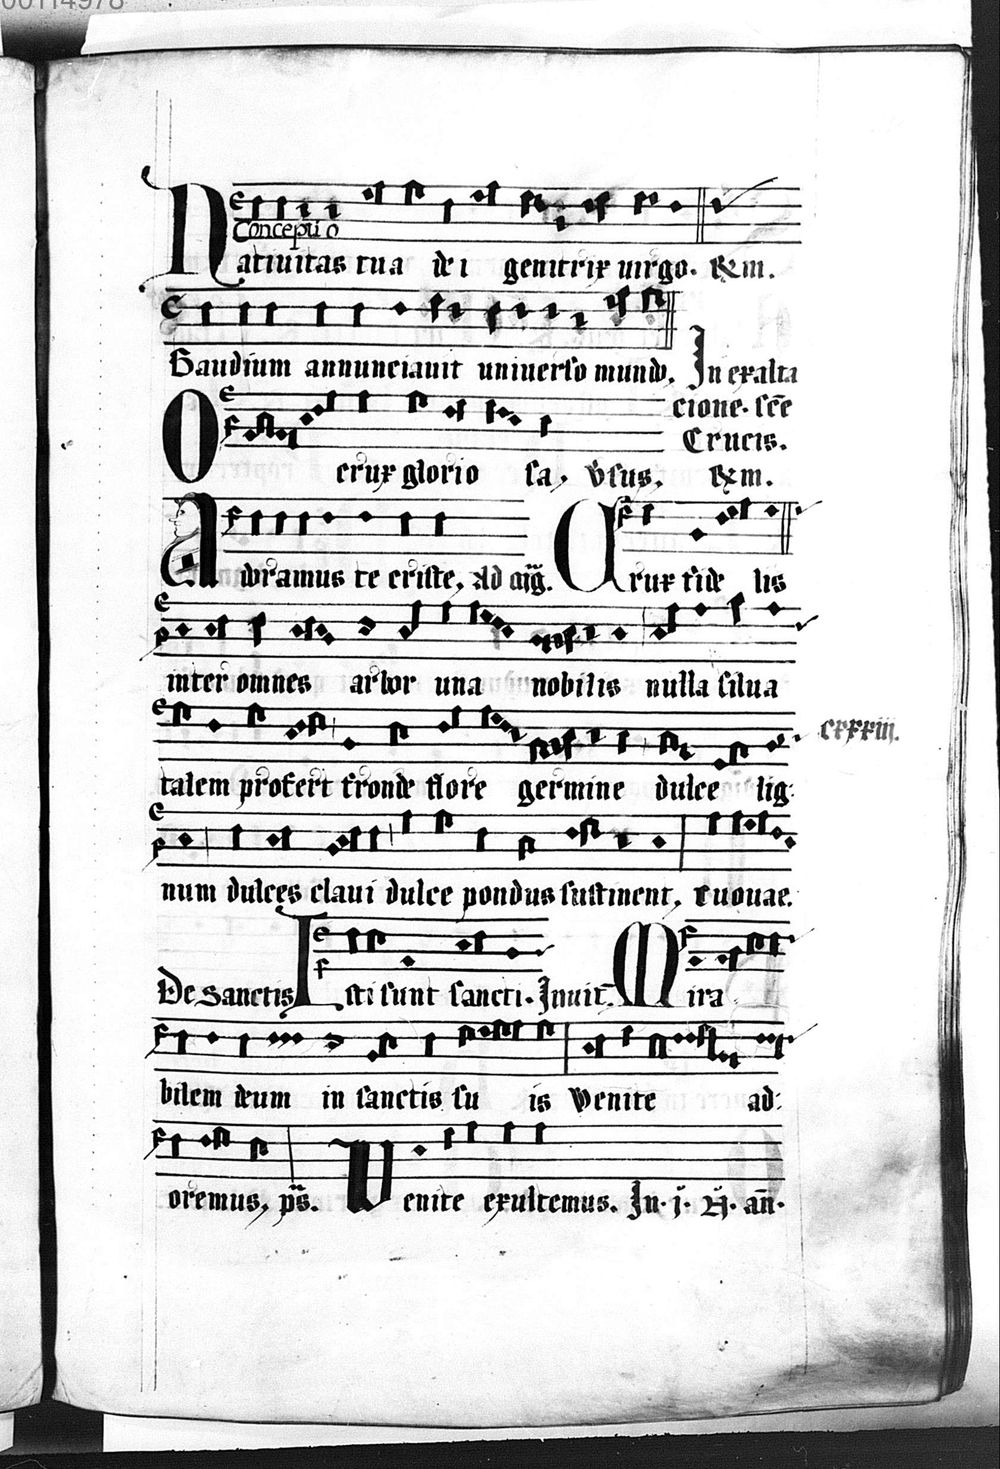 00114978
Concepti o
Natiuitas tua dei genitrix uirgo. R̃m.
Gaudium annunciauit uniuerso mundo. In exalta
cione. scẽ
Crucis.
O crux glorio sa, v̾sus, R̃m.
Adoramus te criste, Ad mg̃. Crux fide lis
inter omnes arbor una nobilis nulla silua
talem profert fronde flore germine dulce lig:
cxxxiii.
num dulces claui dulce pondus sustinent, euouae.
De Sanctis Isti sunt sancti. Inuit. Mira
bilem deum in sanctis su is Venite ad:
oremus, p̃s. Venite exultemus. In. j. N̄. añ.